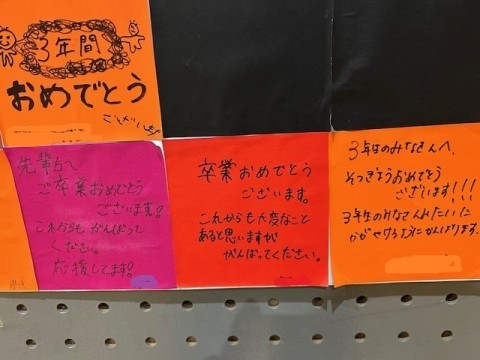 3年間
おめでとう
ございます
先輩方へ
ご卒業おめでとう
ございます!!
これからもがんばって
ください。
応援してます!
卒業おめでとう
ございます。
これからも大変なこと
あると思いますが
がんばってください。
3年生のみなさんへ、
そつぎょうおめでとう
ございます!!!
3年生のみなさんみたいに
かがやけるようにがんばります。